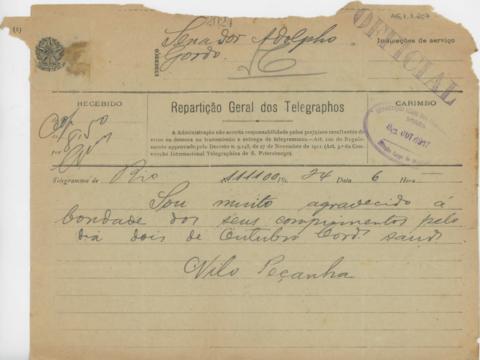 AG1.1.8.257
(1)
Senador Adolpho
Gordo
Indicações de serviço
OFFICIAL
ENDEREÇO
RECEBIDO
Repartição Geral dos Telegraphos
CARIMBO
A Administração não acceita responsabilidade pelos prejuizos resultantes de
erros ou demora na transmissão e entrega de telegrammas.—Art. 100 do Regula-
mento approvado pelo Decreto n. 9.148, de 27 de Novembro de 1911 (Art. 3º da Con-
venção Internacional Telegraphica de S. Petersburgo).
de
8,50
por
Telegramma de Rio 111100 Pls. 24 Data 6 Hora
Sou muito agradecido á
bondade dos seus comprimentos pelo
dia dois de Outubro Cords. sauds
Nilo Peçanha